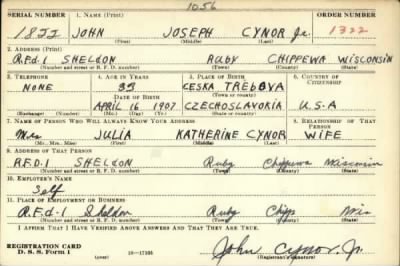 1056
SERIAL NUMBER 1. NAME (Print) ORDER NUMBER
1822 JOHN JOSEPH CYNOR Jr. 1322
(First) (Middle) (Last)
2. ADDRESS (Print)
R.F.d.1 SHELDON RUBY CHIPPEWA WISCONSIN
(Number and street or R. F. D. number) (Town) (County) (State)
3. TELEPHONE 4. AGE IN YEARS 5. PLACE OF BIRTH 6. COUNTRY OF CITIZENSHIP
NONE 33 CESKA TREBOVA
DATE OF BIRTH (Town or county)
APRIL 16 1907 CZECHOSLAVORIA U.S.A
(Exchange) (Number) (Mo.) (Day) (Yr.) (State or country)
7. NAME OF PERSON WHO WILL ALWAYS KNOW YOUR ADDRESS 8. RELATIONSHIP OF THAT PERSON
Mrs JULIA KATHERINE CYNOR WIFE
(Mr., Mrs., Miss) (First) (Middle) (Last)
9. ADDRESS OF THAT PERSON
R.F.D.1 SHELDON Ruby Chippewa Wisconsin
(Number and street or R. F. D. number) (Town) (County) (State)
10. EMPLOYER'S NAME
Self
11. PLACE OF EMPLOYMENT OR BUSINESS
R.F.d-1 Sheldon Ruby Chipp Wis
(Number and street or R. F. D. number) (Town) (County) (State)
I AFFIRM THAT I HAVE VERIFIED ABOVE ANSWERS AND THAT THEY ARE TRUE.
REGISTRATION CARD
D. S. S. Form 1 16—17105 John Cynor, Jr.
(Registrant's signature)